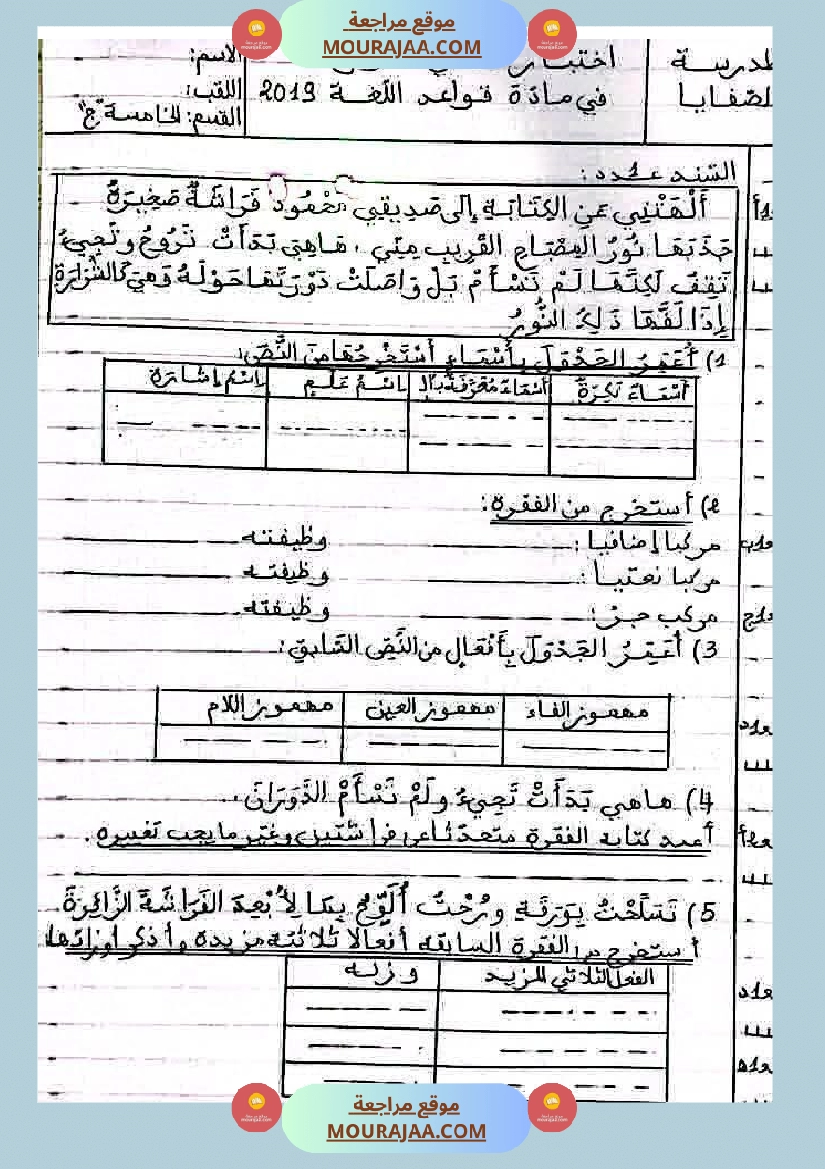 موقع مراجعة
MOURAJAA.COM
الاسم:
اللقب:
القسم: الخامسة "ج"
في مادة قواعد اللغة 2019
السند عدد:
أَلْهَتْنِي عَنِ الكِتَابَةِ إِلى صَدِيقِي فَرَاشَةٌ صَغِيرَةٌ
جَذَبَهَا نُورُ المِصْبَاحِ القَرِيبِ مِنِّي، هَاهِيَ بَدَأَتْ تَرُوحُ وتَجِيءُ
تَقِفُ لَكِنَّهَا لَمْ تَسْأَمْ بَلْ وَاصَلَتْ دَوْرَتَهَا حَوْلَهُ وَهِيَ كَالشَّرَارَةِ
إِذَا لَفَّهَا ذَلِكَ النُّورُ
1) أُعَمِّرُ الجَدْوَلَ بِأَسْمَاءٍ أَسْتَخْرِجُهَا مِنَ النَّصِّ:
أَسْمَاءٌ نَكِرَةٌ
أَسْمَاءٌ مُعَرَّفَةٌ بِال
اِسْمُ عَلَمٍ
اِسْمُ إِشَارَةٍ
2) أستخرج من الفقرة:
مركبا إضافيا: وظيفته
مركبا نعتيا: وظيفته
مركب جر: وظيفته
3) أُعَمِّرُ الجَدْوَلَ بِأَفْعَالٍ من النَّصِّ السَّابِقِ:
مهموز الفاء
مهموز العين
مهموز اللام
4) هاهي بَدَأَتْ تَجِيءُ ولَمْ تَسْأَمْ الدَّوَرَانَ.
أعيد كتابة الفقرة متحدثا عن فراشتين وغير ما يجب تغييره.
5) تَسَلَّحْتُ بِوَرَقَةٍ ورُحْتُ أُلَوِّحُ بِهَا لِأُبْعِدَ الفَرَاشَةَ الزَّائِرَةَ
أستخرج من الفقرة السابقة أفعالا ثلاثية مزيدة وأذكر أوزانها
الفعل الثلاثي المزيد
وزنه
موقع مراجعة
MOURAJAA.COM